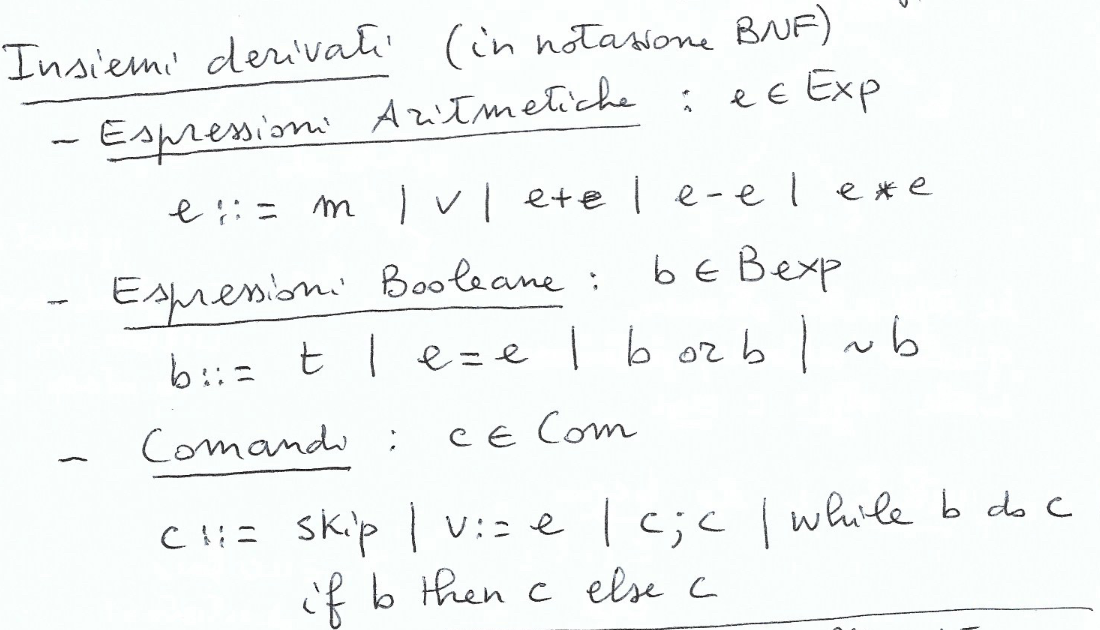 Insiemi derivati (in notazione BNF)
- Espressioni Aritmetiche : e ∈ Exp
e ::= m | v | e+e | e-e | e*e
- Espressioni Booleane : b ∈ Bexp
b ::= t | e=e | b or b | ~b
- Comandi : c ∈ Com
c ::= skip | v:= e | c;c | while b do c
if b then c else c